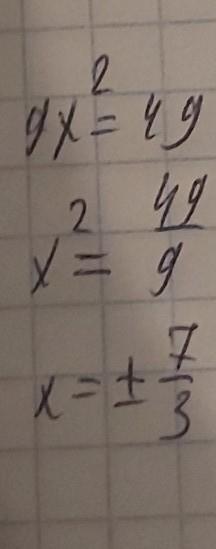 9x² = 49
x² = 49/9
x = ± 7/3